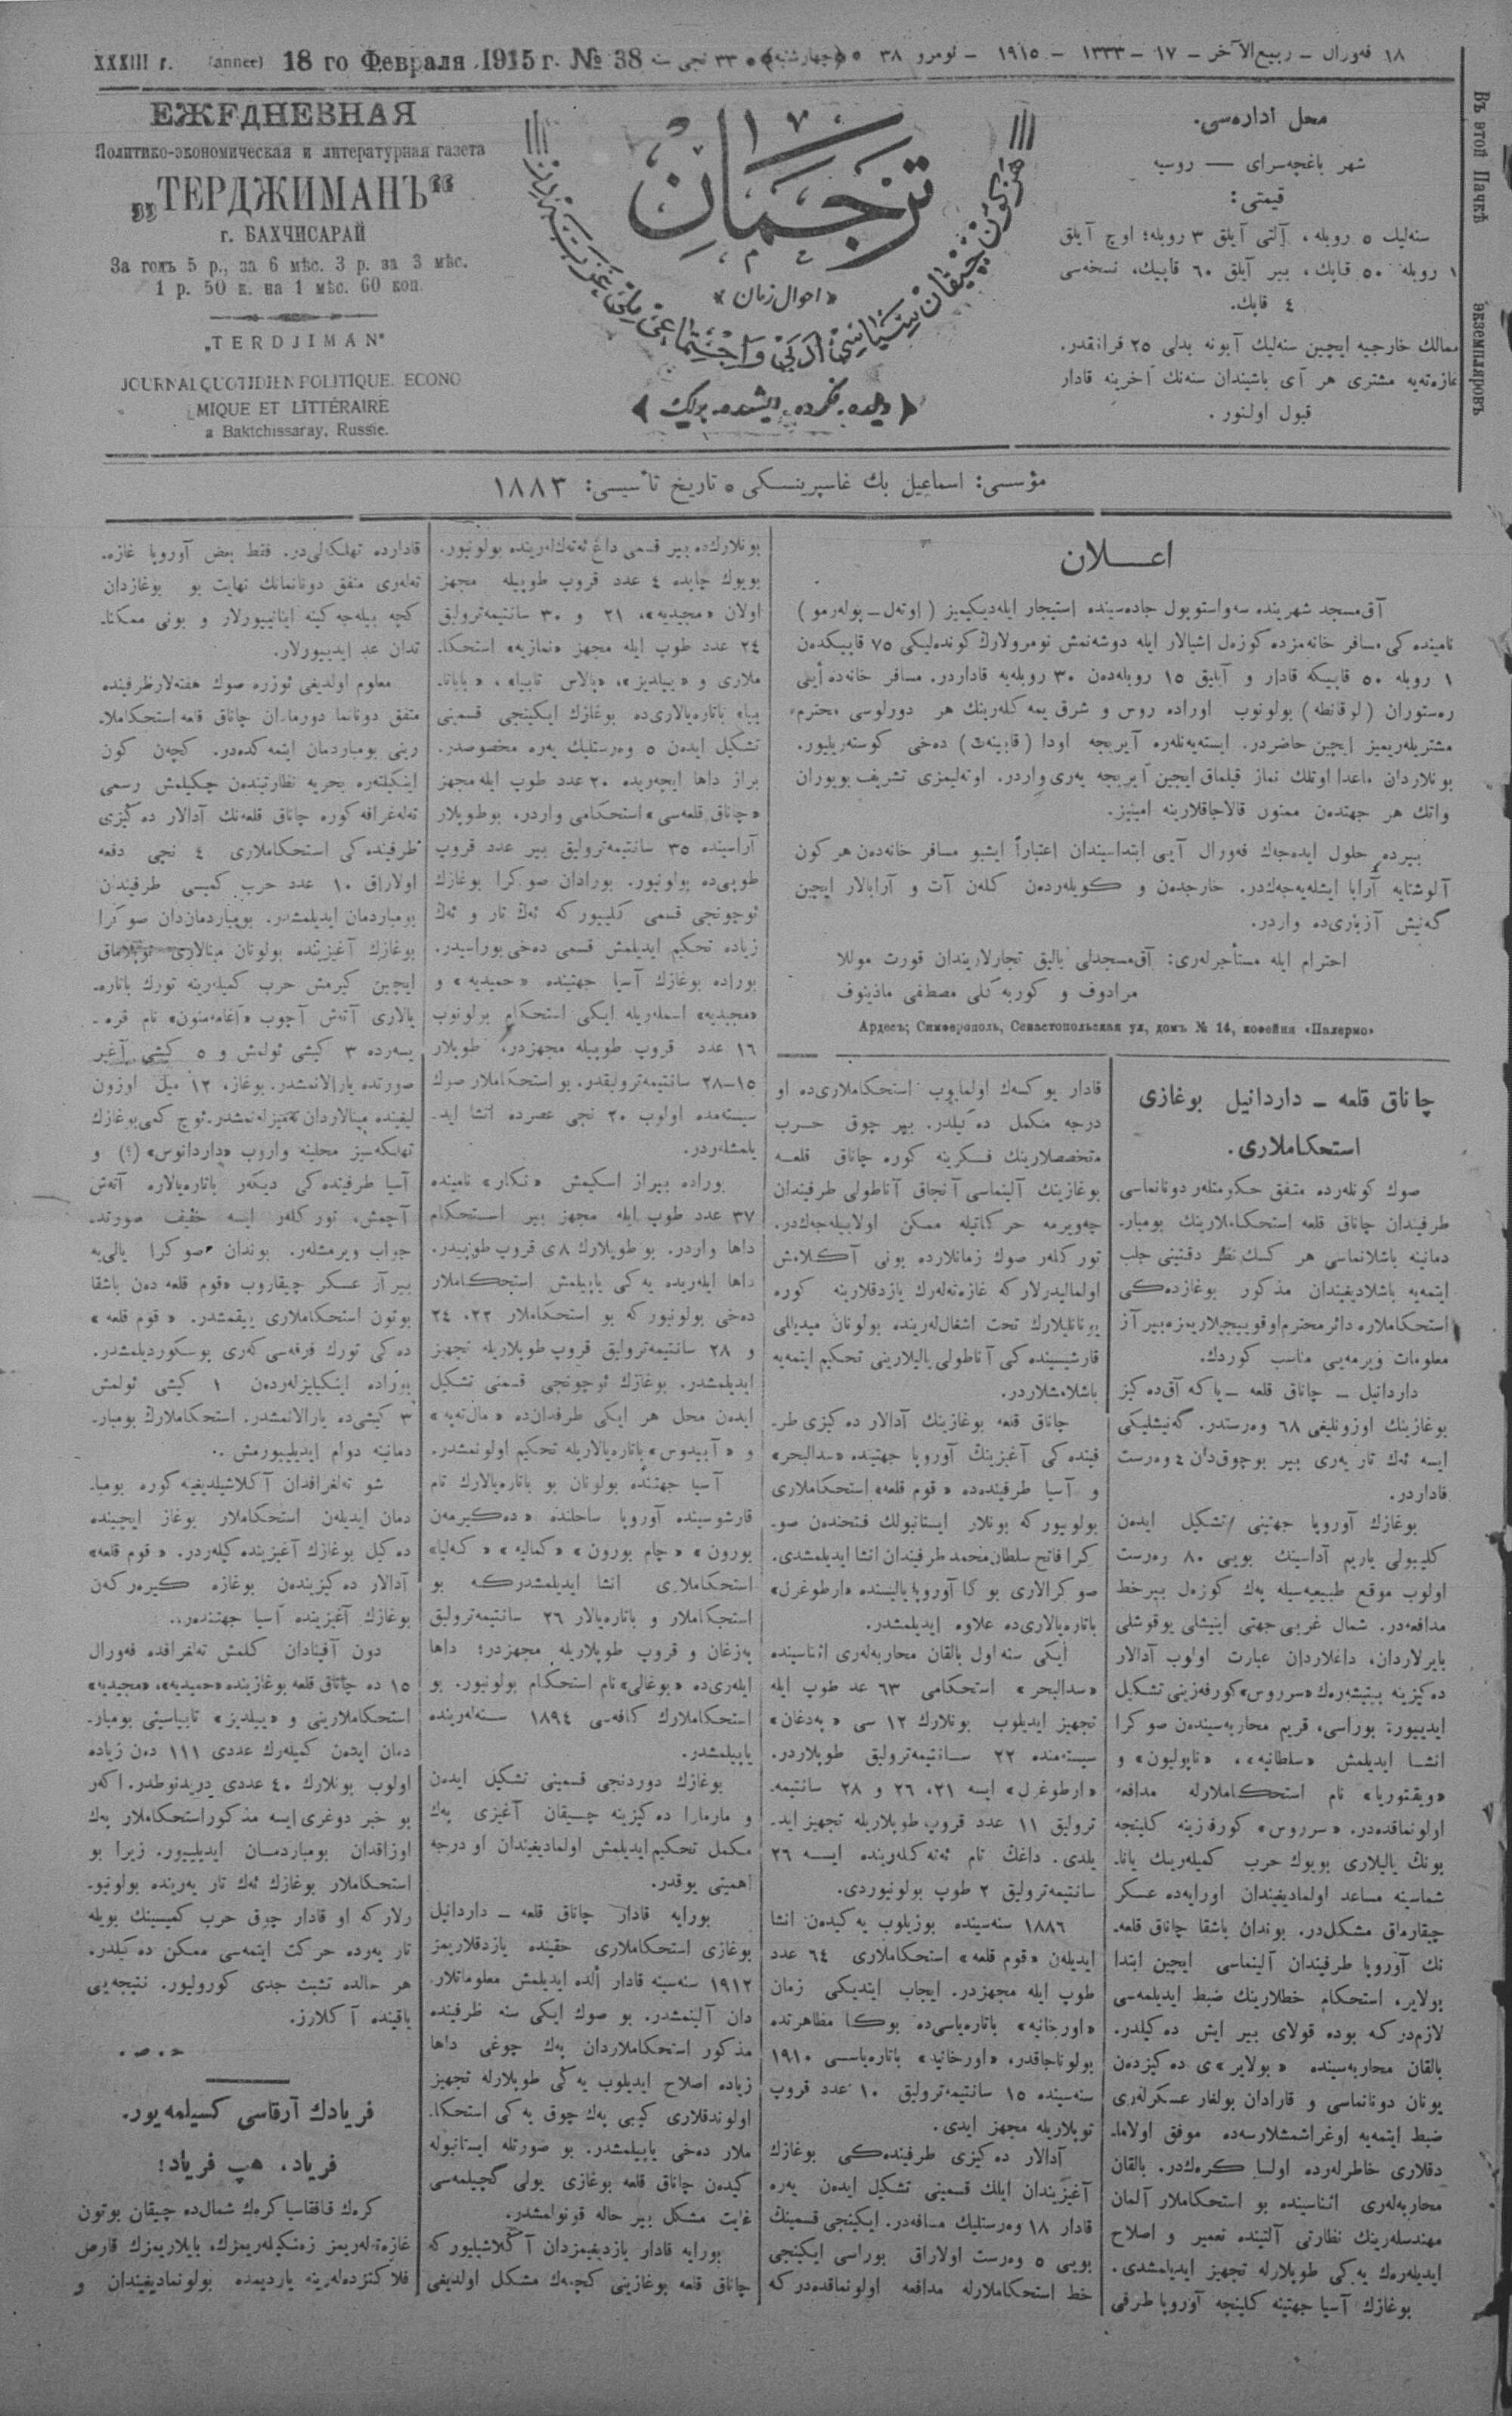 XXXIII г. (annee) 18 го Февраля 1915 г. № 38 ٣٣ نجی سنه ﴿چهارشنبه﴾ ١٨ فەورال ــ ربیع‌الآخر ــ ١٧ ــ ١٣٣٣ ــ ١٩١٥ ــ نومرو ٣٨
ЕЖЕДНЕВНАЯ
Политико-экономическая и литературная газета
„ТЕРДЖИМАНЪ“
г. БАХЧИСАРАЙ
За годъ 5 р., за 6 мѣс. 3 р. за 3 мѣс.
1 р. 50 к. на 1 мѣс. 60 коп.
„TERDJIMAN“
JOURNAL QUOTIDIEN POLITIQUE. ECONO
MIQUE ET LITTÉRAIRE
a Baktchissaray, Russie.
ترجمان
«احوال زمان»
هر کون چیقان سیاسی، ادبی و اجتماعی ملی غزته‌در
﴿دلده، فکرده، ایشده برلك﴾
محل اداره‌سی.
شهر باغچه‌سرای — روسیه
قیمتی:
سنه‌لیك ٥ روبله، آلتی آیلق ٣ روبله؛ اوچ آیلق
١ روبله ٥٠ قاپك، بیر آیلق ٦٠ قاپیك، نسخه‌سی
٤ قاپك.
ممالك خارجیه ایچین سنه‌لیك آبونه بدلی ٢٥ فرانقدر.
غازه‌ته‌یه مشتری هر آی باشیندان سنه‌نك آخرینه قادار
قبول اولنور.
Въ этой Пачкѣ экземпляровъ
مؤسسی: اسماعیل بك غاسپرینسکی ٥ تاریخ تأسیسی: ١٨٨٣
اعــلان
آق‌مسجد شهرینده سه‌واستوپول جاده‌سینده استیجار ایله‌دیکیمیز (اوتەل ــ پولەرمو)
نامینده‌کی مسافر خانه‌مزده کوزەل اشیالار ایله دوشه‌نمش نومرولارك کونده‌لیکی ٧٥ قاپیکدەن
١ روبله ٥٠ قاپیکه قادار و آیلیق ١٥ روبله‌دەن ٣٠ روبله‌یه قاداردر. مسافر خانه‌ده أیلی
رەستوران (لوقانطه) بولونوب اوراده روس و شرق یمه‌کله‌رینك هر دورلوسی محترم
مشتریله‌ریمیز ایچین حاضردر. ایسته‌یەنلەره آیریجه اودا (قابینەت) دەخی کوسته‌ریلیور.
بونلاردان ماعدا اوتلك نماز قیلماق ایچین آیریجه یەری واردر. اوتەلیمزی تشریف بویوران
واتك هر جهتدەن ممنون قالاجاقلارینه امینیز.
بیرده حلول ایده‌جەك فەورال آیی ابتداسیندان اعتباراً ایشبو مسافر خانه‌دەن هر کون
آلوشتایه آرابا ایشله‌یه‌جەکدر. خارجدەن و کویلەردەن کلەن آت و آرابالار ایچین
گەنیش آزباری‌ده واردر.
احترام ایله مستأجرلەری: آق‌مسجدلی بالیق تجارلاریندان قورت موللا
مرادوف و کوربه‌کلی مصطفی ماذینوف
Ардесъ; Симферополь, Севастопольская ул, домъ № 14, кофейня «Палермо»
چاناق قلعه ــ داردانیل بوغازی
استحکاملاری.
صوك کونلەرده متفق حکومتلەر دونانماسی
طرفیندان چاناق قلعه استحکاملارینك بومبار-
دمانینه باشلانماسی هر کسك نظر دقتینی جلب
ایتمه‌یه باشلادیغیندان مذکور بوغازدەکی
استحکاملاره دائر محترم اوقوییجیلاریمزه بیر آز
معلومات ویرمەیی مناسب کوردك.
داردانیل ــ چاناق قلعه ــ یاکه آق‌دەکیز
بوغازینك اوزونلیغی ٦٨ وەرستدر. گەنیشلیکی
ایسه ئەك تار یەری بیر بوچوقدان ٤ وەرست
قاداردر.
بوغازك آوروپا جهتینی تشکیل ایدەن
کلیبولی یاریم آداسینك بویی ٨٠ وەرست
اولوب موقع طبیعیەسیله پەك کوزەل بیر خط
مدافعەدر. شمال غربی جهتی اینیشلی یوقوشلی
بایرلاردان، داغلاردان عبارت اولوب آدالار
دەکیزینه ییتیشەرەك «سرروس» کورفەزینی تشکیل
ایدییور؛ بوراسی، قریم محاربەسیندەن صوکرا
انشا ایدیلمش «سلطانیه»، «ناپولیون» و
«ویقتوریا» نام استحکاملارله مدافعه
اولونماقدەدر. «سرروس» کورفەزینه کلینجه
بونك یالیلاری بویوك حرب کمیلەرینك یانا-
شماسینه مساعد اولمادیغیندان اورایەده عسکر
چیقارماق مشکلدر. بوندان باشقا چاناق قلعه-
نك آوروپا طرفیندان آلینماسی ایچین ابتدا
بولایر، استحکام خطلارینك ضبط ایدیلمەسی
لازمدر که بوده قولای بیر ایش دەکیلدر.
بالقان محاربەسینده «بولایر»ی دەکیزدەن
یونان دونانماسی و قارادان بولغار عسکرلەری
ضبط ایتمەیه اوغراشمشلارسەده موفق اولاما-
دقلاری خاطرلەرده اولسا کرەکدر. بالقان
محاربەلەری اثناسینده بو استحکاملار آلمان
مهندسلەرینك نظارتی آلتینده تعمیر و اصلاح
ایدیلەرەك یەکی طوپلارله تجهیز ایدیلمشدی.
بوغازك آسیا جهتینه کلینجه آوروپا طرفی
قادار یوکسەك اولمایوب استحکاملاری‌ده او
درجه مکمل دەکیلدر. بیر چوق حرب
متخصصلارینك فکرینه کوره چاناق قلعه
بوغازینك آلینماسی آنجاق آناطولی طرفیندان
چەویرمه حرکاتیله ممکن اولابیلەجەکدر.
تورکلەر صوك زمانلارده بونی آکلامش
اولمالیدرلار که غازەتەلەرك یازدقلارینه کوره
یونانلیلارك تحت اشغاللەرینده بولونان میدیللی
قارشیسینده‌کی آناطولی یالیلارینی تحکیم ایتمەیه
باشلامشلاردر.
چاناق قلعه بوغازینك آدالار دەکیزی طر-
فینده‌کی آغیزینك آوروپا جهتینده «سدالبحر»
و آسیا طرفیندەده «قوم قلعه» استحکاملاری
بولونیور که بونلار ایستانبولك فتحندەن صو-
کرا فاتح سلطان محمد طرفیندان انشا ایدیلمشدی.
صوکرالاری بوکا آوروپا یالیسنده «ارطوغرل»
باتارەیالاری‌ده علاوه ایدیلمشدر.
ایکی سنه اول بالقان محاربەلەری اثناسینده
«سدالبحر» استحکامی ٦٣ عدد طوپ ایله
تجهیز ایدیلوب بونلارك ١٢ سی «بەدغان»
سیستەمنده ٢٢ سانتیمەترولیق طوپلاردر.
«ارطوغرل» ایسه ٢١، ٢٦ و ٢٨ سانتیمە-
ترولیق ١١ عدد قروپ طوپلاریله تجهیز اید-
یلدی. داغك تام ئەتەکلەرینده ایسه ٢٦
سانتیمەترولیق ٢ طوپ بولونیوردی.
١٨٨٦ سنەسینده بوزیلوب یەکیدەن انشا
ایدیلەن «قوم قلعه» استحکاملاری ٦٤ عدد
طوپ ایله مجهزدر. ایجاب ایتدیکی زمان
«اورخانیه» باتارەیاسی‌ده بوکا مظاهرتده
بولوناجاقدر، «اورخانیه» باتارەیاسی ١٩١٠
سنەسینده ١٥ سانتیمەترولیق ١٠ عدد قروپ
توپلاریله مجهز ایدی.
آدالار دەکیزی طرفینده‌کی بوغازك
آغیزیندان ایلك قسمینی تشکیل ایدەن یەره
قادار ١٨ وەرستلیك مسافەدر. ایکینجی قسمینك
بویی ٥ وەرست اولاراق بوراسی ایکینجی
خط استحکاملارله مدافعه اولونماقدەدر که
بونلارك‌ده بیر قسمی داغ ئەتەکلەرینده بولونیور.
بویوك چاپده ٤ عدد قروپ طوپیله مجهز
اولان «مجیدیه»، ٢١ و ٣٠ سانتیمەترولیق
٢٤ عدد طوپ ایله مجهز «نمازیه» استحکا-
ملاری و «ییلدیز»، «پالاس تابیا»، «بابا تا-
بیا» باتارەیالاری‌ده بوغازك ایکینجی قسمینی
تشکیل ایدەن ٥ وەرستلیك یەره مخصوصدر.
براز داها ایچەریده ٢٠ عدد طوپ ایله مجهز
«چاناق قلعەسی» استحکامی واردر. بو طوپلار
آراسینده ٣٥ سانتیمەترولیق بیر عدد قروپ
طوپی‌ده بولونیور. بورادان صوکرا بوغازك
ئوچونجی قسمی کلییور که ئەك تار و ئەك
زیاده تحکیم ایدیلمش قسمی دەخی بوراسیدر.
بوراده بوغازك آسیا جهتینده «حمیدیه» و
«مجیدیه» اسملەریله ایکی استحکام بولونوب
١٦ عدد قروپ طوپیله مجهزدر، طوپلار
١٥ــ٢٨ سانتیمەترولیقدر. بو استحکاملار صوك
سیستەمده اولوب ٢٠ نجی عصرده انشا اید-
یلمشلەردر.
بوراده بیراز اسکیمش «نکار» نامینده
٣٧ عدد طوپ ایله مجهز بیر استحکام
داها واردر. بو طوپلارك ٨ی قروپ طوپیدر.
داها ایلەریده یەکی یاپیلمش استحکاملار
دەخی بولونیور که بو استحکاملار ٢٢، ٢٤
و ٢٨ سانتیمەترولیق قروپ طوپلاریله تجهیز
ایدیلمشدر. بوغازك ئوچونجی قسمنی تشکیل
ایدەن محل هر ایکی طرفدان‌ده «مال‌تەپه»
و «آبیدوس» باتارەیالاریله تحکیم اولونمشدر.
آسیا جهتنده بولونان بو باتارەیالارك تام
قارشوسینده آوروپا ساحلنده «دەکیرمەن
بورون» «چام بورون» «کمالیه» «کەلیا»
استحکاملاری انشا ایدیلمشدرکه بو
استحکاملار و باتارەیالار ٢٦ سانتیمەترولیق
بەزغان و قروپ طوپلاریله مجهزدر؛ داها
ایلەری‌ده «بوغالی» نام استحکام بولونیور. بو
استحکاملارك کافەسی ١٨٩٤ سنەلەرینده
یاپیلمشدر.
بوغازك دوردنجی قسمینی تشکیل ایدەن
و مارمارا دەکیزینه چیقان آغیزی پەك
مکمل تحکیم ایدیلمش اولمادیغیندان او درجه
اهمیتی یوقدر.
بورایه قادار چاناق قلعه ــ داردانیل
بوغازی استحکاملاری حقینده یازدقلاریمز
١٩١٢ سنەسینه قادار ألده ایدیلمش معلوماتلار-
دان آلینمشدر. بو صوك ایکی سنه ظرفینده
مذکور استحکاملاردان پەك چوغی داها
زیاده اصلاح ایدیلوب یەکی طوپلارله تجهیز
اولوندقلاری کیبی پەك چوق یەکی استحکا-
ملار دەخی یاپیلمشدر. بو صورتله ایستانبوله
کیدەن چاناق قلعه بوغازی یولی گچیلمەسی
غایت مشکل بیر حاله قونولمشدر.
بورایه قادار یازدیغیمزدان آکلاشیلیور که
چاناق قلعه بوغازینی کچمەك مشکل اولدیغی
قادارده تهلکەلی‌در. فقط بعض آوروپا غازه-
تەلەری متفق دونانمانك نهایت بو بوغازدان
کچه بیلەجەکینه اینانییورلار و بونی ممکنا-
تدان عد ایدییورلار.
معلوم اولدیغی ئوزره صوك هفتەلار ظرفینده
متفق دونانما دورمادان چاناق قلعه استحکاملا-
رینی بومباردمان ایتمەکدەدر. کچەن کون
اینکیلتەره بحریه نظارتیندەن چکیلمش رسمی
تەلەغرافه کوره چاناق قلعەنك آدالار دەکیزی
طرفینده‌کی استحکاملاری ٤ نجی دفعه
اولاراق ١٠ عدد حرب کمیسی طرفیندان
بومباردمان ایدیلمشدر. بومباردماندان صوکرا
بوغازك آغیزینده بولونان مینالاری توپلاماق
ایچین کیرمش حرب کمیلەرینه تورك باتارە-
یالاری آتەش آچوب «آغامەمنون» نام قره-
یسەرده ٣ کیشی ئولمش و ٥ کیشی آغیر
صورتده یارالانمشدر. بوغاز، ١٢ میل اوزون
لیغینده مینالاردان تەمیزلەنمشدر. ئوچ کمی بوغازك
تهلکەسیز محلینه واروب «داردانوس» (؟) و
آسیا طرفینده‌کی دیکەر باتارەیالاره آتەش
آچمش، تورکلەر ایسه خفیف صورتده
جواب ویرمشلەر. بوندان صوکرا یالی‌یه
بیر آز عسکر چیقاروب «قوم قلعه»دەن باشقا
بوتون استحکاملاری ییقمشدر. «قوم قلعه»
ده‌کی تورك فرقەسی گەری پوسکوردیلمشدر.
بوراده اینکیلیزلەردەن ١ کیشی ئولمش
٣ کیشی‌ده یارالانمشدر. استحکاملارك بومبار-
دمانینه دوام ایدیلییورمش..
شو تەلغرافدان آکلاشیلدیغیه کوره بومبا-
دمان ایدیلەن استحکاملار بوغاز ایچینده
دەکیل بوغازك آغیزینده‌کیلەردر. «قوم قلعه»
آدالار دەکیزیندەن بوغازه کیرەرکەن
بوغازك آغیزینده آسیا جهتندەدر..
دون آفینادان کلمش تەلغرافده فەورال
١٥ ده چاناق قلعه بوغازینده «حمیدیه»، «مجیدیه»
استحکاملارینی و «ییلدیز» تابیاسینی بومبار-
دمان ایدەن کمیلەرك عددی ١١١ دەن زیاده
اولوب بونلارك ٤٠ عددی دریدنوطدر. اکەر
بو خبر دوغری ایسه مذکور استحکاملار پەك
اوزاقدان بومباردمان ایدیلییور. زیرا بو
استحکاملار بوغازك ئەك تار یەرینده بولونیو-
رلارکه او قادار چوق حرب کمیسینك بویله
تار یەرده حرکت ایتمەسی ممکن دەکیلدر.
هر حالده تشبث جدی کورولیور. نتیجەیی
یاقینده آکلارز.
ح. ص.
فریادك آرقاسی کسیلمەیور.
فریاد، هپ فریاد!
کرەك قافقاسیا کرەك شمال‌ده چیقان بوتون
غازەتەلەریمز زەنکیلەریمزك، بایلاریمزك قارص
فلاکتزدەلەرینه یاردیمده بولونمادیغیندان و